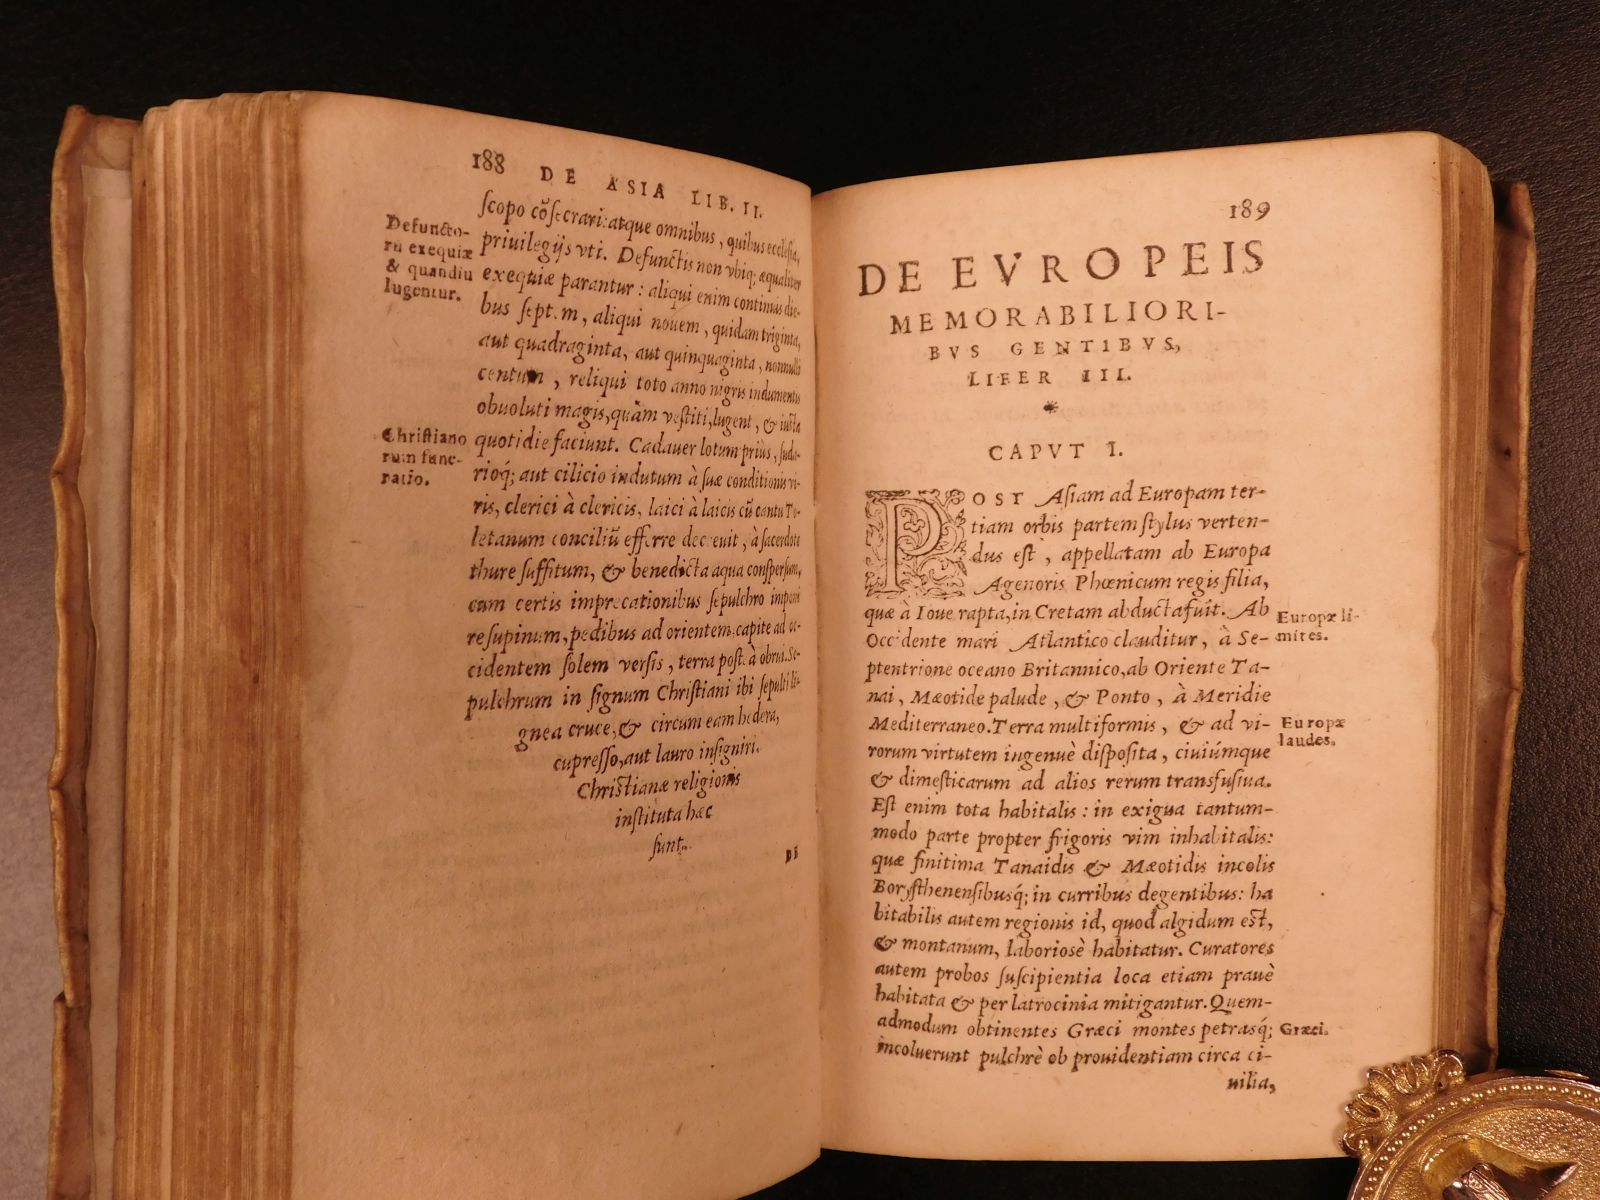 188 DE ASIA LIB. II.
scopo cõsecrari: atque omnibus, quibus ecclesia,
priuilegijs vti. Defunctis non vbiq; æqualiter
exequiæ parantur: aliqui enim continuis die-
bus septem, aliqui nouem, quidam triginta,
aut quadraginta, aut quinquaginta, nonnulli
centum, reliqui toto anno nigris indumentis
obuoluti magis, quàm vestiti, lugent, & iusta
quotidie faciunt. Cadauer lotum prius, suda-
rioq́; aut cilicio indutum à suæ conditionis vi-
ris, clerici à clericis, laici à laicis cũ cantu To-
letanum conciliũ efferre decreuit, à sacerdote
thure suffitum, & benedicta aqua conspersum,
cum certis imprecationibus sepulchro imponi
resupinum, pedibus ad orientem capite ad oc-
cidentem solem versis, terra post à obrui. Se-
pulchrum in signum Christiani ibi sepulti li-
gnea cruce, & circum eam hedera,
cupresso, aut lauro insigniri.
Christianæ religionis
instituta hæc
sunt.
DE
Defuncto-
rũ exequiæ
& quandiu
lugentur.
Christiano
rum fune-
ratio.
189
DE EVROPEIS
MEMORABILIORI-
BVS GENTIBVS,
LIBER III.
*
CAPVT I.
POST Asiam ad Europam ter-
tiam orbis partem stylus verten-
dus est, appellatam ab Europa
Agenoris Phœnicum regis filia,
quæ à Ioue rapta, in Cretam abducta fuit. Ab
Occidente mari Atlantico clauditur, à Se-
ptentrione oceano Britannico, ab Oriente Ta-
nai, Mæotide palude, & Ponto, à Meridie
Mediterraneo. Terra multiformis, & ad vi-
rorum virtutem ingenuè disposita, ciuiúmque
& dimesticarum ad alios rerum transfusiua.
Est enim tota habitalis: in exigua tantum-
modo parte propter frigoris vim inhabitalis:
quæ finitima Tanaidis & Mæotidis incolis
Borysthenensibusq́; in curribus degentibus: ha
bitabilis autem regionis id, quod algidum est,
& montanum, laboriosè habitatur. Curatores
autem probos suscipientia loca etiam prauè
habitata & per latrocinia mitigantur. Quem-
admodum obtinentes Græci montes petrasq́;
incoluerunt pulchrè ob prouidentiam circa ci-
uilia,
Europæ li-
mites.
Europæ
laudes.
Græci.